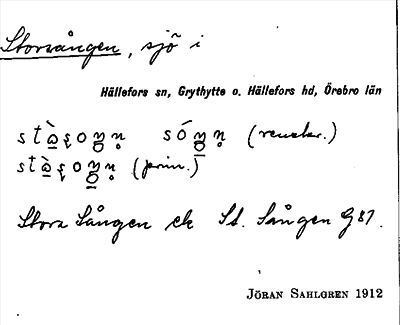 Storsången, sjö i
Hällefors sn, Grythytte o. Hällefors hd, Örebro län
(renskr.)
(prim.)
Stora Sången ek St. Sången G 87.
JÖRAN SAHLGREN 1912